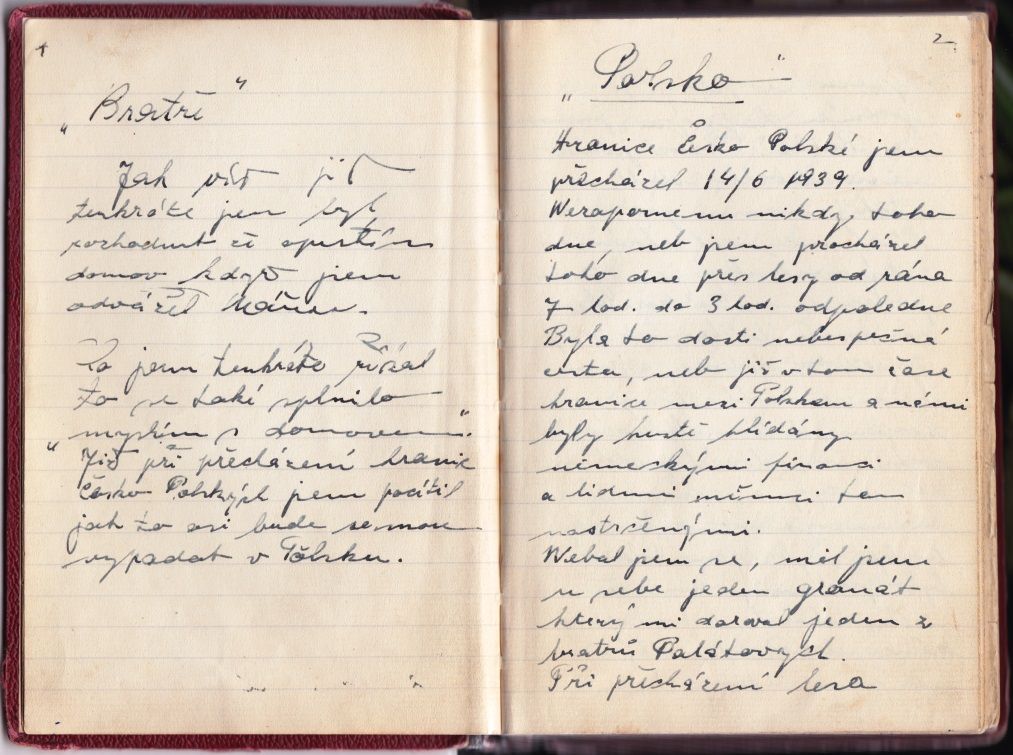 1
„Bratře"
Jak víš již
tenkráte jsem byl
rozhodnut že opustím
domov když jsem
odvážel
Co jsem tenkráte říkal
to se také splnilo
„myslím s domovem".
Již při přecházení hranic
Česko Polských jsem pocítil
jak to asi bude semnou
vypadat v Polsku.
2
„Polsko"
Hranice Česko Polské jsem
přecházel 14/6 1939.
Nezapomenu nikdy toho
dne, neb jsem procházel
toho dne přes lesy od rána
7 hod. do 3 hod. odpoledne
Byla to dosti nebespečná
cesta, neb již v tom čase
hranice mezi Polskem a námi
byly hustě hlídány
německými financi
a lidmi tam
nastrčenými.
Nebal jsem se, měl jsem
u sebe jeden granát
který mi daroval jeden z
bratrů Palátových.
Při přecházení lesa